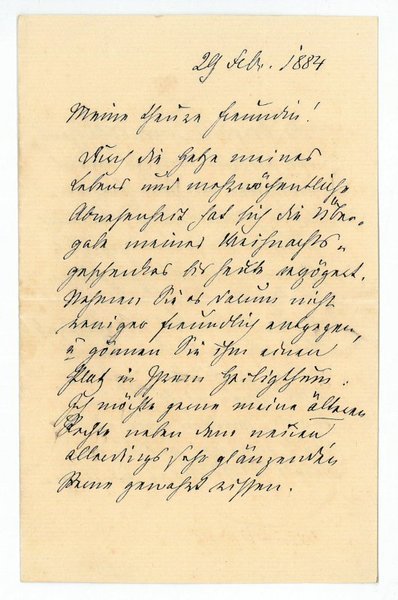 29 Febr. 1884
Meine theure Freundin!
Durch die Hetze meines
Lebens und mehrwöchentliche
Abwesenheit hat sich die Über-
gabe meines Weihnachts-
geschenkes bis heute verzögert.
Nehmen Sie es darum nicht
weniger freundlich entgegen,
u gönnen Sie ihm einen
Platz in Ihrem Heiligthum.
Ich möchte gerne meine älteren
Rechte neben dem neuen
allerdings sehr glänzenden
Sterne gewahrt wissen.